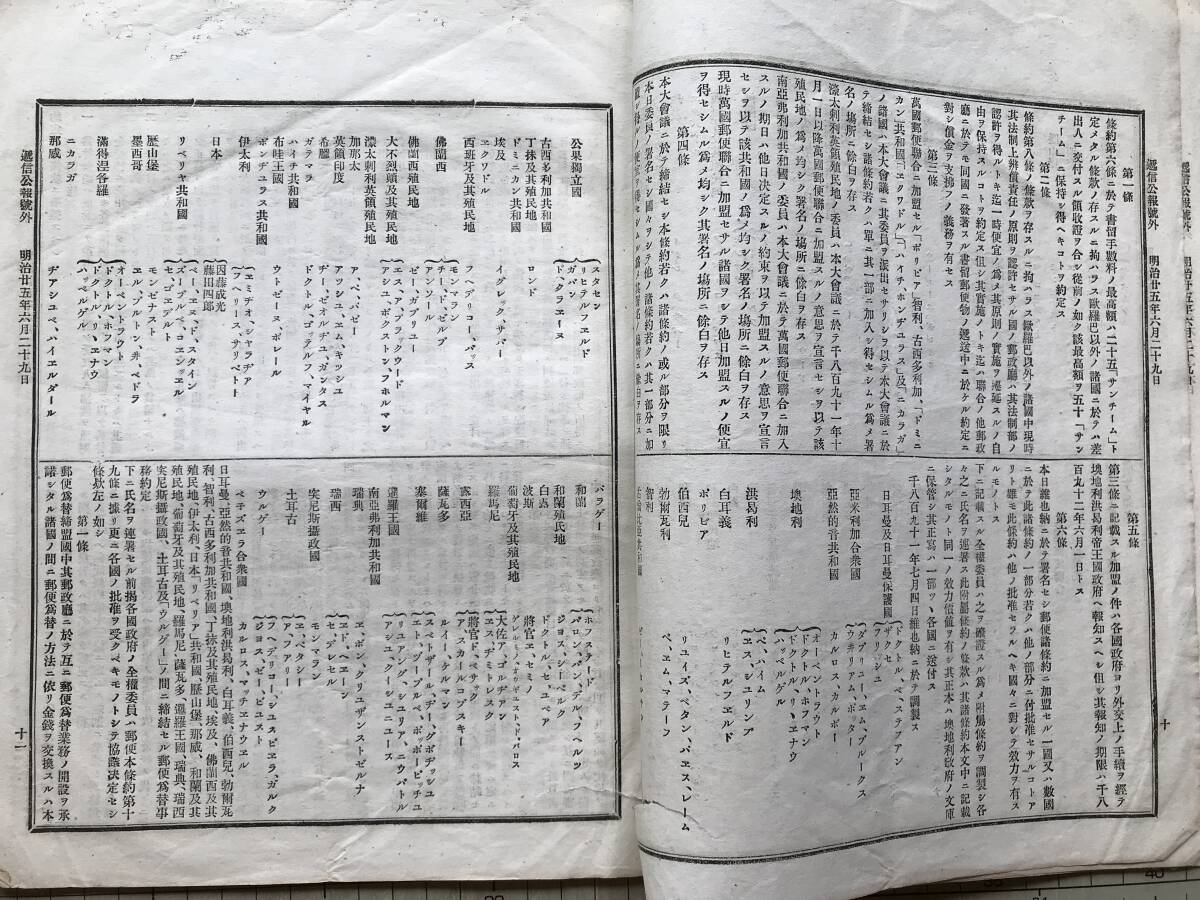 遞信公報號外　明治廿五年六月二十九日
十
第一條
條約第六條ニ於テ書留手數料ノ最高額ハ二十五「サンチーム」ト
定メタル條款ノ存スルニ拘ハラス歐羅巴以外ノ諸國ニ於テハ差
出人ニ交付スル領收證ヲ合シ從前ノ如ク該最高額ヲ五十「サン
チーム」ニ保持シ得ヘキコトヲ約定ス
第二條
條約第八條ノ條款ヲ存スルニ拘ハラス歐羅巴以外ノ諸國中現時
其法制上辨償責任ノ原則ヲ認許セサル國ノ郵政廳ハ其法制部ノ
認許ヲ得ルトキ迄一時便宜ノ爲メ其原則ノ實施ヲ遷延スルノ自
由ヲ保持スルコトヲ約定ス但シ其實施ノトキ迄ハ聯合ノ他郵政
廳ニ於テモ同國ニ發著スル書留郵便物ノ遞送中ニ於ケル約定ニ
對シ償金ヲ支拂フノ義務ヲ有セス
第三條
萬國郵便聯合ニ加盟セル「ボリビア」智利、古西多利加、「ドミニ
カン」共和國「ヱクワドル」「ハイチ、ホンヂユラス」及「ニカラガ」
ノ諸國ハ本大會議ニ其委員ヲ派出セサリシヲ以テ本大會議ニ於
テ締結セシ諸條約若クハ單ニ其一部ニ加入シ得セシムル爲メ署
名ノ場所ニ餘白ヲ存ス
濠太剌利英領殖民地ノ委員ハ本大會議ニ於テ千八百九十一年十
月一日以降萬國郵便聯合ニ加盟スルノ意思ヲ宣言セシヲ以テ該
殖民地ノ爲メ均シク署名ノ場所ニ餘白ヲ存ス
南亞弗利加共和國ノ委員ハ本大會議ニ於テ萬國郵便聯合ニ加入
スルノ期日ハ他日決定スルノ約束ヲ以テ加盟スルノ意思ヲ宣言
セシヲ以テ該共和國ノ爲メ均シク署名ノ場所ニ餘白ヲ存ス
現時萬國郵便聯合ニ加盟セサル諸國ヲシテ他日加盟スルノ便宜
ヲ得セシムル爲メ均シク其署名ノ場所ニ餘白ヲ存ス
第四條
本大會議ニ於テ締結セシ本條約若クハ諸條約ノ或ル部分ヲ限リ
本日委員ノ署名セシ國々ヲシテ他ノ諸條約若クハ其一部分ニ加
第五條
第三條ニ記載スル加盟ノ件ハ各國政府ヨリ外交上ノ手續ヲ經テ
墺地利洪曷利帝王國政府ヘ報知スヘシ但其報知ノ期限ハ千八
百九十二年六月一日トス
第六條
本日維也納ニ於テ署名セシ郵便諸條約ニ加盟セル一國又ハ數國
ニ於テ此諸條約ノ一部分若クハ他ノ部分ニ付批准セサルコトア
リト雖モ此條約ハ他ノ批准セラルヘキ國々ニ對シテ效力ヲ有ス
下ニ記載スル全權委員ハ之ヲ確證スル爲メ附屬條約ヲ調製シ各
々之ニ氏名ヲ連署ス此附屬條約ノ條款ハ其諸條約本文中ニ記載
シタルモノト同一ノ效力價値ヲ有シ其正本ハ墺地利政府ノ文庫
ニ保管シ其正寫ハ一部ヅヽ各國ニ送付ス
千八百九十一年七月四日維也納ニ於テ調製ス
日耳曼及日耳曼保護國
ドクトル、ベステフアン
ザクセ
フリツシユ
亞米利加合衆國
ダブリユー、ヱム、ブルークス
ウヰリアム、ポッター
亞爾然的音共和國
カルロス、カルボー
墺地利
オーベントラウト
ドクトル、ホフマン
ドクトル、リ、ヱナウ
ハツベルゲル
洪曷利
ペ、ハイム
ヱス、シユリンプ
白耳義
リヒテルフヱルド
ボリビア
伯西兒
リユイズ、ベタン、パヱス、レーム
勃爾瓦利
イ、ヱム、マテーフ
智利
遞信公報號外　明治廿五年六月二十九日
十一
公果獨立國
スタセン
リヒテルフヱルド
ガバン
ドックラヱーヌ
古西多利加共和國
丁抹及其殖民地
ロンド
ドミニカン共和國
埃及
イグレック、サバー
ヱクワドル
西班牙及其殖民地
フヘデリコー、バッス
佛蘭西
モンマラン
チー、ド、セルブ
アンソール
佛蘭西殖民地
ゼー、ガブリユー
大不烈顛及其殖民地
ヱス、ア、ブラックウード
アシユ、ブクストン、フホルマン
濠太剌利英領殖民地
加那太
アペ、ベゼー
英領印度
アッシユ、ヱム、キッシユ
希臘
ジー、ゼオルヂユ、ガンタス
ガラマラ
ドクトル、ゴットヂルフ、マイヤル
ハイチ共和國
布哇王國
ウトゼーヌ、ボレール
ボンヂユラス共和國
伊太利
ヱミヂオ、シヤラヂア
フヘリース、サリベット
日本
因藤成光
藤田四郎
リベリヤ共和國
ベー、ヱーヌ、ド、スタイン
ズーブルベ、コヱッヱル
セ、ゴーデアルト
歷山堡
モンゼナスト
墨西哥
ヱル、ブルトン、井、ペドラ
滿得涅各羅
オーベントラウト
ドクトル、ホフマン
ドクトル、リ、ヱナウ
ハッベルゲル
ニカラガ
那威
ヂアシコベ、ハイエルダール
パラゲー
和蘭
ホフスラード
バロン、バン、デル、フヘルツ
和蘭殖民地
ジヨス、シーベルク
白露
ドクトル、セ、ユベア
波斯
將官、ヱ、セミノ
葡萄牙及其殖民地
ゲレルミノ、アウギュスト、ド、バロス
羅馬尼
大佐、ア、ゴルヂアン
ヱス、デミトレスク
露西亞
將官、ド、ベサック
アー、スカールコブスキー
薩瓦多
ルイー、ケールマン
塞爾維
スベトザール、イ、ヂー、グボヂッシュ
ヱトブッベル、ペ、ボーポビーチユ
暹羅王國
リユアング、シユリア、ニウバトル
アシユ、ケーシュニユース
南亞弗利加共和國
瑞典
ヱ、ボン、クリユザンストゼルナ
瑞西
ヱド、ヘヱーン
セ、デレセール
突尼斯攝政國
モンマラン
土耳古
ヱ、ベタクシー
ア、フアリー
ウルゲー
フヘデリコー、ジユスビヱラ、ガルク
ジヨス、ゼー、ビユスト
ベテズヱラ合衆國
カルロス、マッチヱナウヱル
日耳曼、亞然的音共和國、墺地利洪曷利、白耳義、伯西兒、勃爾瓦
利、智利、古西多利加共和國、丁抹及其殖民地、埃及、佛蘭西及其
殖民地、伊太利、日本「リベリア」共和國、歷山堡、那威、和蘭及其
殖民地、葡萄牙及其殖民地、羅馬尼、薩瓦多、暹羅王國、瑞典、瑞西
突尼斯攝政國、土耳古及「ウルゲー」ノ間ニ締結セル郵便爲替事
務約定
下ニ氏名ヲ連署セル前揭各國政府ノ全權委員ハ郵便本條約第十
九條ニ據リ更ニ各國ノ批准ヲ受クベキモノトシテ協議決定セシ
條款左ノ如シ
第一條
郵便爲替締盟國中其郵政廳ニ於テ互ニ郵便爲替業務ノ開設ヲ承
諾シタル諸國ノ間ニ郵便爲替ノ方法ニ依リ金錢ヲ交換スルハ本